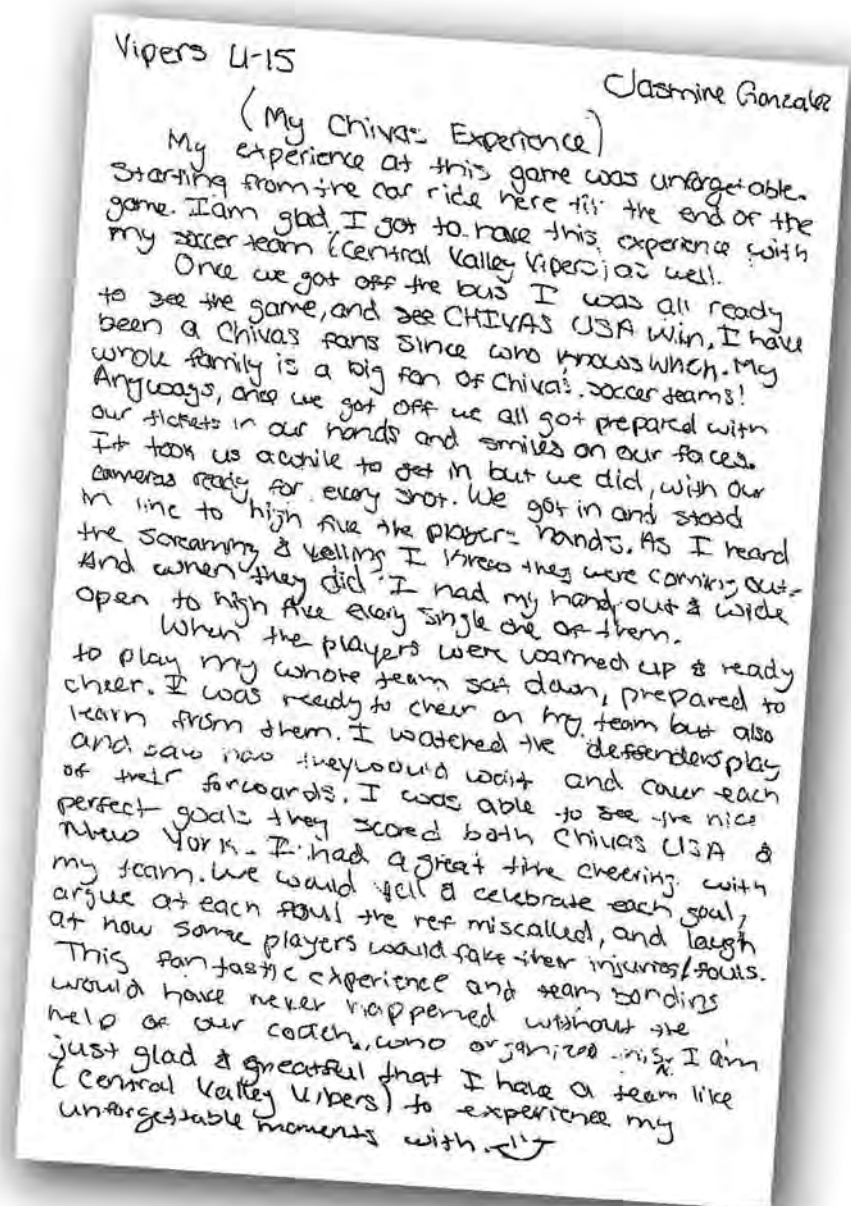 Vipers U-15
Jasmine Gonzalez
(My Chivas Experience)
My experience at this game was unforgetable.
Starting from the car ride here till the end of the
game. I am glad I got to have this experience with
my soccer team (Central Valley Vipers) as well.
Once we got off the bus I was all ready
to see the game, and see CHIVAS USA win, I have
been a Chivas fans since who knows when. My
whole family is a big fan of Chivas soccer teams!
Anyways, once we got off we all got prepared with
our tickets in our hands and smiles on our faces.
It took us awhile to get in but we did, with our
cameras ready for every shot. We got in and stood
in line to high five the players hands. As I heard
the screaming & yelling I knew they were coming out.
And when they did I had my hand out & wide
open to high five every single one of them.
When the players were warmed up & ready
to play my whole team sat down, prepared to
cheer. I was ready to cheer on my team but also
learn from them. I watched the deffenders play
and saw how they would wait and cover each
of their forwards. I was able to see the nice
perfect goals they scored both Chivas USA &
New York. I had a great time cheering with
my team. We would yell & celebrate each goal,
argue at each foul the ref miscalled, and laugh
at how some players would fake their injuries/fouls.
This fantastic experience and team bonding
would have never happened without the
help of our coach, who organized this. I am
just glad & greatful that I have a team like
(Central Valley Vipers) to experience my
unforgettable moments with.